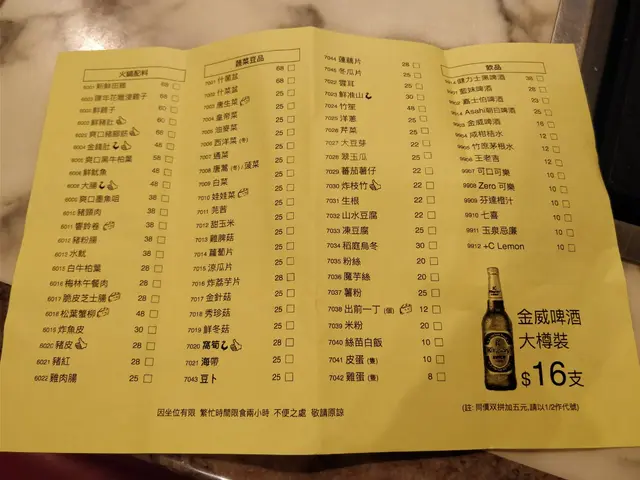 火鍋配料
6001 新鮮甜雞 68
6002 陳年花雕浸雞子 68
6003 鮮雞子 60
6002 鮮豬肚 60
6003 爽口豬腳筋 68
6004 金錢肚 48
6005 爽口黑牛柏葉 58
6006 鮮魷魚 48
6009 大腸 48
6005 爽口墨魚咀 48
6010 豬頸肉 38
6011 響鈴卷 38
6012 豬粉腸 38
6012 水魷 38
6013 白牛柏葉 28
6016 梅林午餐肉 28
6017 脆皮芝士腸 28
6018 松葉蟹柳 48
6019 炸魚皮 30
6020 豬皮 28
6021 豬紅 28
6022 雞肉腸 25
蔬菜豆品
7021 什菌盆 68
7002 什菌盆 68
7003 唐生菜 25
7004 皇帝菜 25
7005 油麥菜 25
7006 西洋菜(冬) 25
7007 通菜 25
7008 唐蒿(冬)/菠菜 25
7009 白菜 25
7010 娃娃菜 25
7011 芫茜 25
7012 甜玉米 25
7013 雞脾菇 25
7014 蘿蔔片 25
7015 涼瓜片 25
7016 炸荔芋片 28
7017 金針菇 25
7018 秀珍菇 25
7019 鮮冬菇 25
7020 窩筍 28
7021 海帶 25
7043 豆卜 25
7044 蓮藕片 28
7045 冬瓜片 25
7022 雲耳 25
7023 鮮准山 30
7024 竹笙 48
7025 洋蔥 25
7026 芹菜 25
7027 大豆芽 22
7028 翠玉瓜 25
7029 蕃茄薯仔 22
7030 炸枝竹 22
7031 生根 22
7032 山水豆腐 22
7033 凍豆腐 25
7034 稻庭烏冬 30
7035 粉絲 20
7036 魔芋絲 22
7037 薯粉 25
7038 出前一丁(個) 12
7039 米粉 20
7040 絲苗白飯 10
7041 皮蛋(隻) 10
7042 雞蛋(隻) 8
飲品
9914 健力士黑啤酒 38
藍妹啤酒 28
嘉士伯啤酒 23
9914 Asahi朝日啤酒 25
9903 金威啤酒 16
9904 咸柑桔水 12
9905 竹蔗茅根水 12
9906 王老吉 12
9907 可口可樂 10
9908 Zero 可樂 10
9909 芬達橙汁 10
9910 七喜 10
9911 玉泉忌廉 10
9912 +C Lemon 10
金威啤酒
大樽裝
$16支
因坐位有限 繁忙時間限食兩小時 不便之處 敬請原諒
(註: 同價双拼加五元,請以1/2作代號)